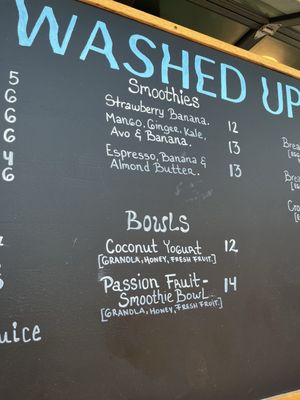 WASHED UP
5
6
6
6
6
4
6
Smoothies
Strawberry Banana. 12
Mango, Ginger, Kale,
Avo & Banana. 13
Espresso, Banana &
Almond Butter. 13
Brea
Brea
Cro
Bowls
Coconut Yogurt 12
[GRANOLA, HONEY, FRESH FRUIT.]
Passion Fruit-
Smoothie Bowl. 14
[GRANOLA, HONEY, FRESH FRUIT.]
uice